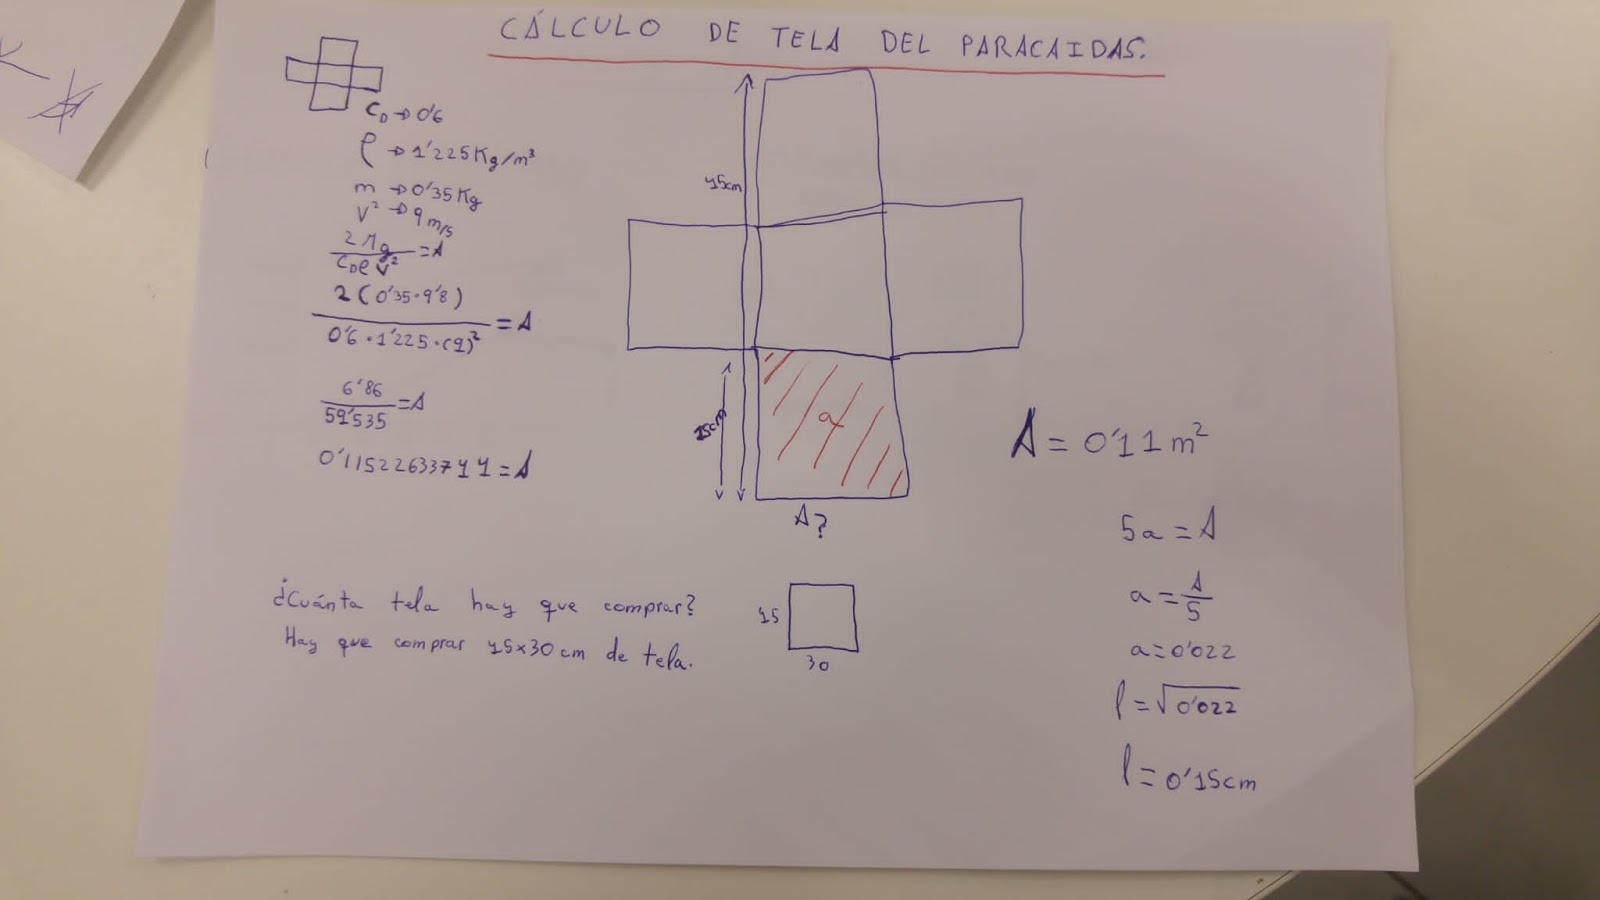 CÁLCULO DE TELA DEL PARACAIDAS.
C_D → 0'6
ρ → 1'225 Kg/m³
m → 0'35 Kg
V² → 9 m/s
2 Mg / C_D ρ V² = A
2 (0'35 · 9'8) / 0'6 · 1'225 · (9)² = A
6'86 / 59'535 = A
0'11522633744 = A
45cm
15cm
a
A?
A = 0'11 m²
5a = A
a = A/5
a = 0'022
l = √0'022
l = 0'15cm
¿Cuánta tela hay que comprar?
Hay que comprar 45x30 cm de tela.
45
30